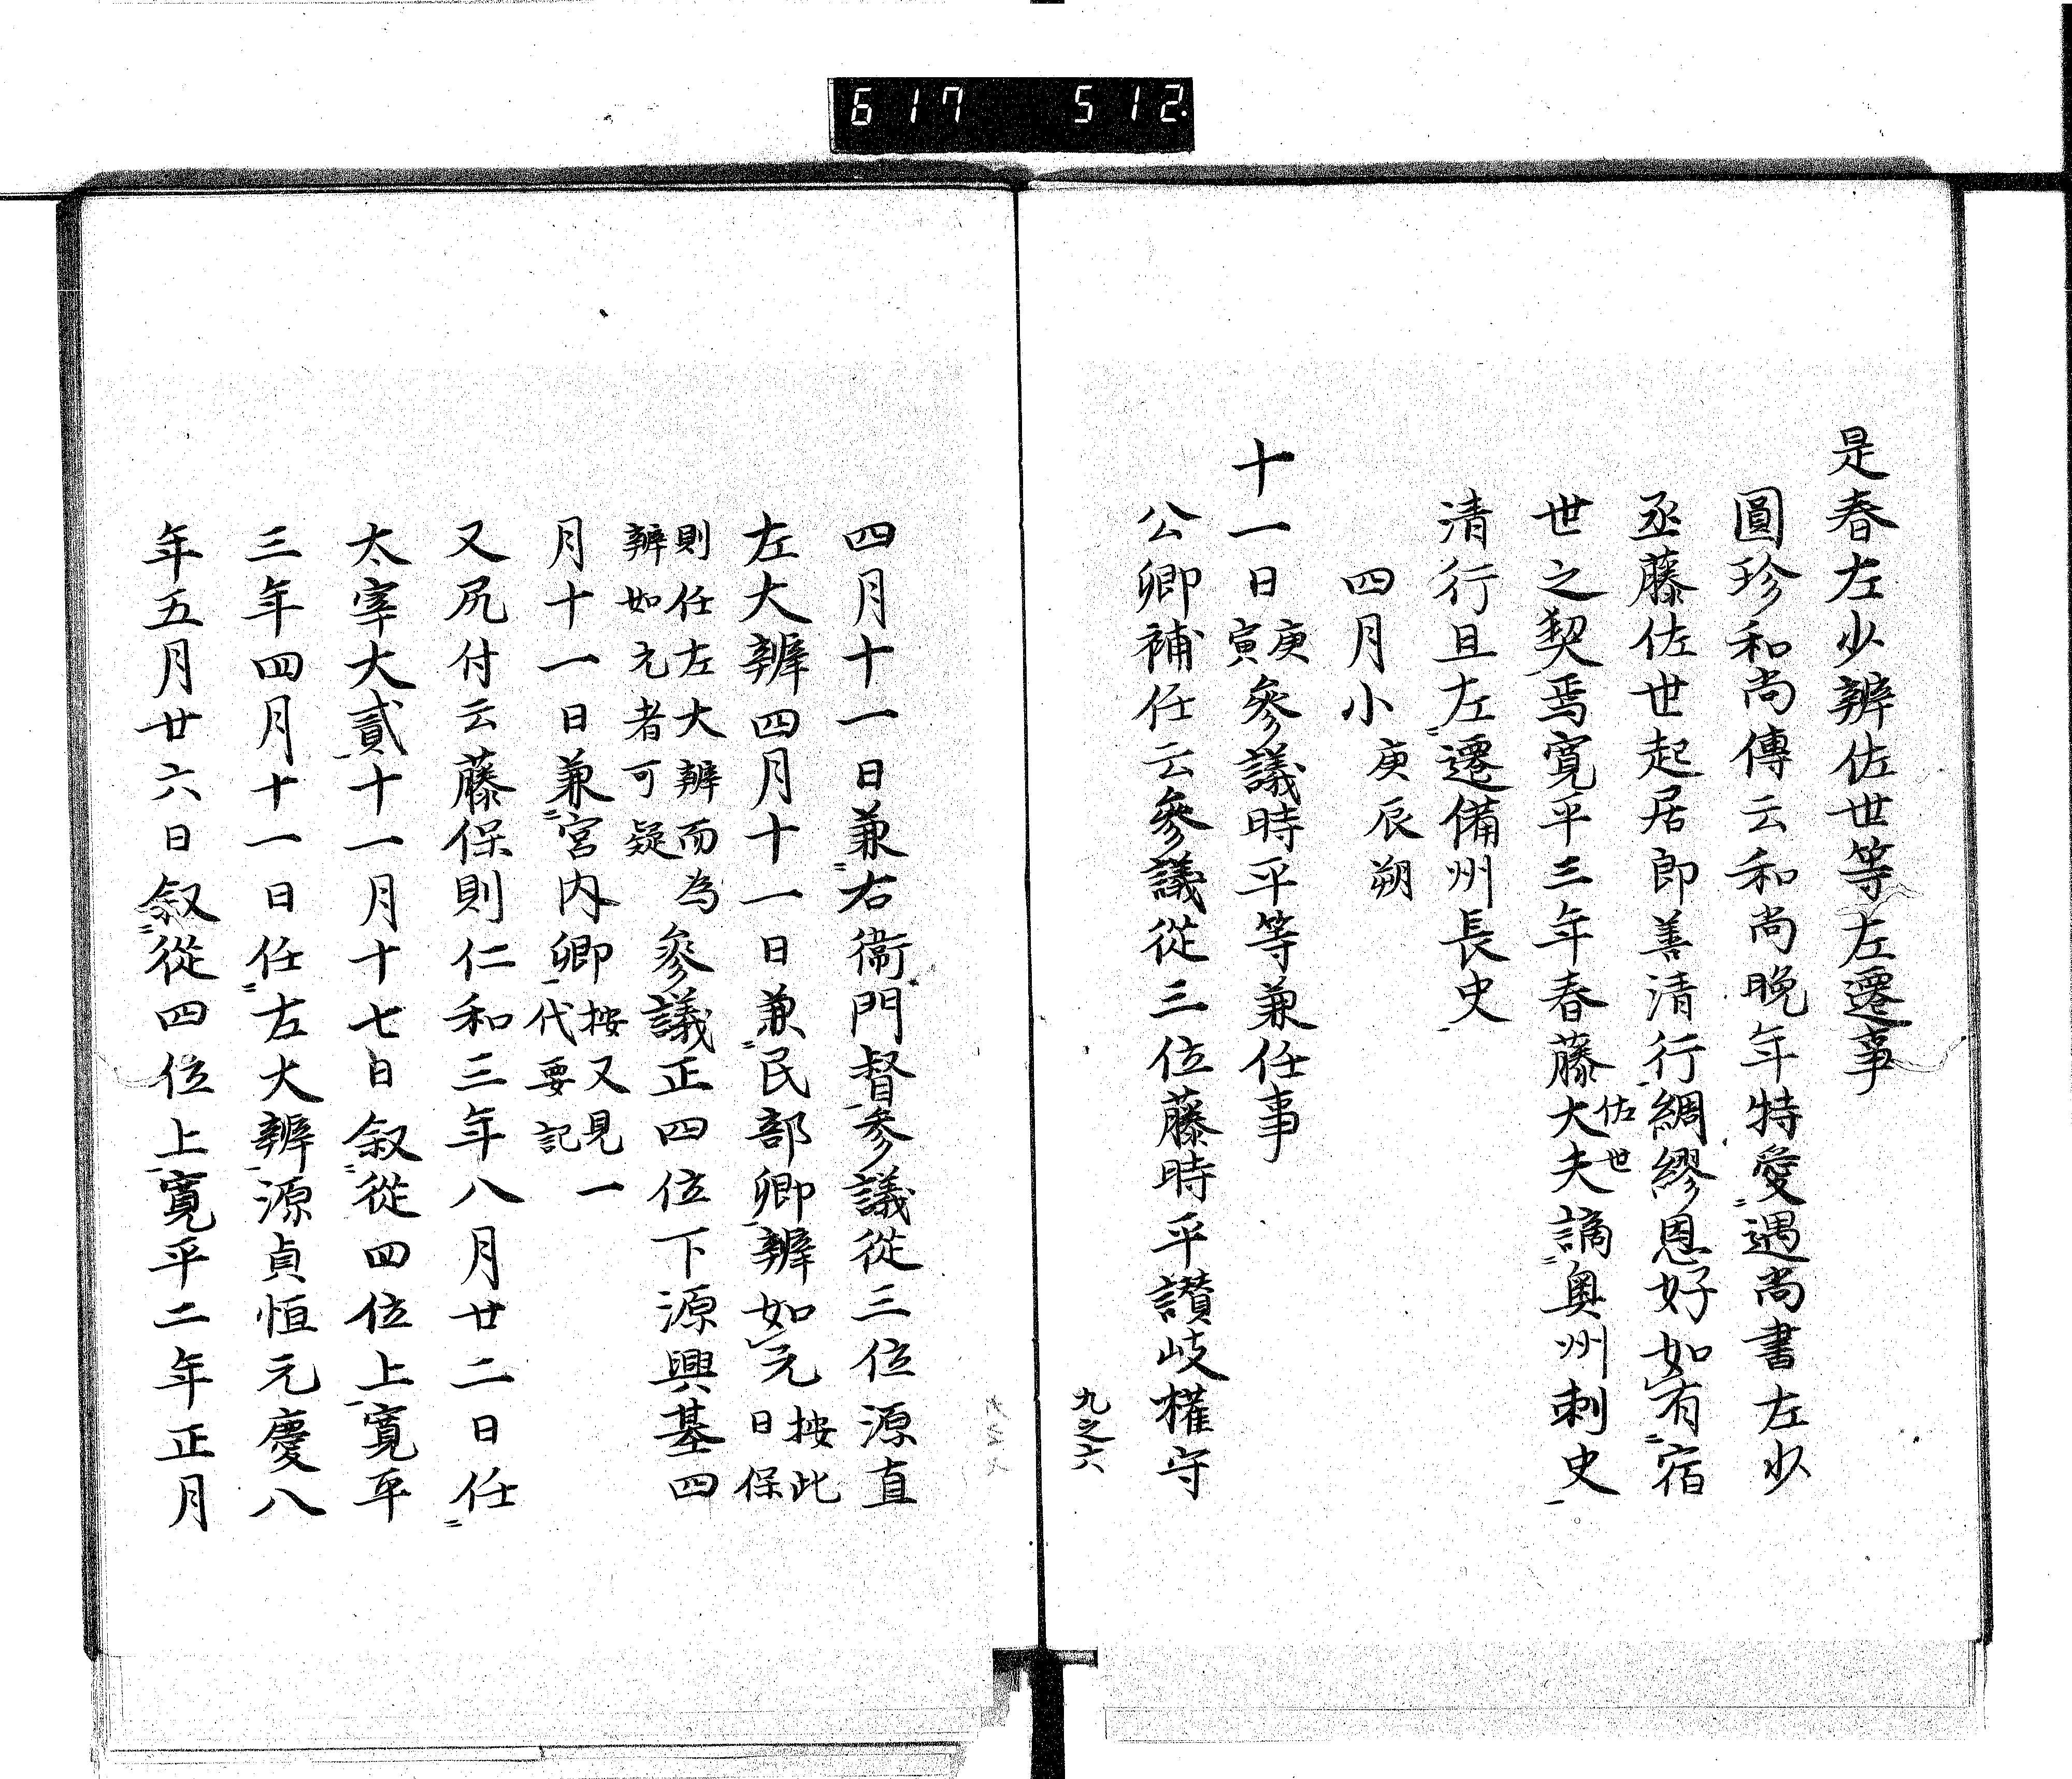 617 512
是春左少辨佐世等左遷事
圓珍和尚傳云和尚晚年特愛遇尚書左少
丞藤佐世起居郎善清行綢繆恩好如有宿
世之契焉寛平三年春藤大夫佐世謫奥州刺史
清行且左遷備州長史
四月小庚辰朔
十一日庚寅參議時平等兼任事
公卿補任云參議從三位藤時平讃岐權守
九之六
四月十一日兼右衞門督參議從三位源直
左大辨四月十一日兼民部卿辨如元按此日保
則任左大辨而為辨如元者可疑參議正四位下源興基四
月十一日兼宮内卿按又見一代要記
又尻付云藤保則仁和三年八月廿二日任
太宰大貳十一月十七日叙從四位上寛平
三年四月十一日任左大辨源貞恒元慶八
年五月廿六日叙從四位上寛平二年正月